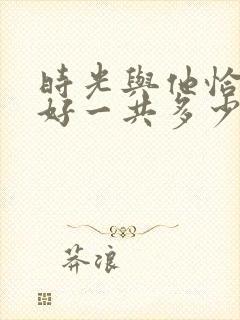 時光與他恰
好一共多少
莽浪